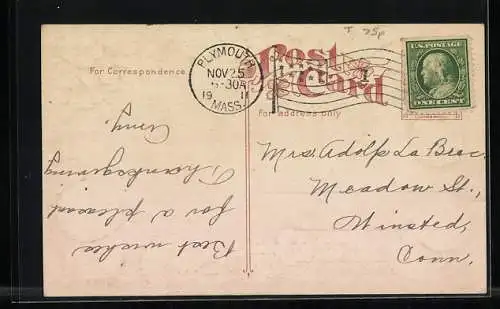 T 75p
Post
Card
For Correspondence.
PLYMOUTH
NOV 25
-30A
19 11
MASS.
U.S. POSTAGE
ONE CENT
For address only
Mrs. Adolf La Brec.
Meadow St.,
Winsted,
Conn.
Best wishes
for a pleasant
Thanksgiving
Amy.